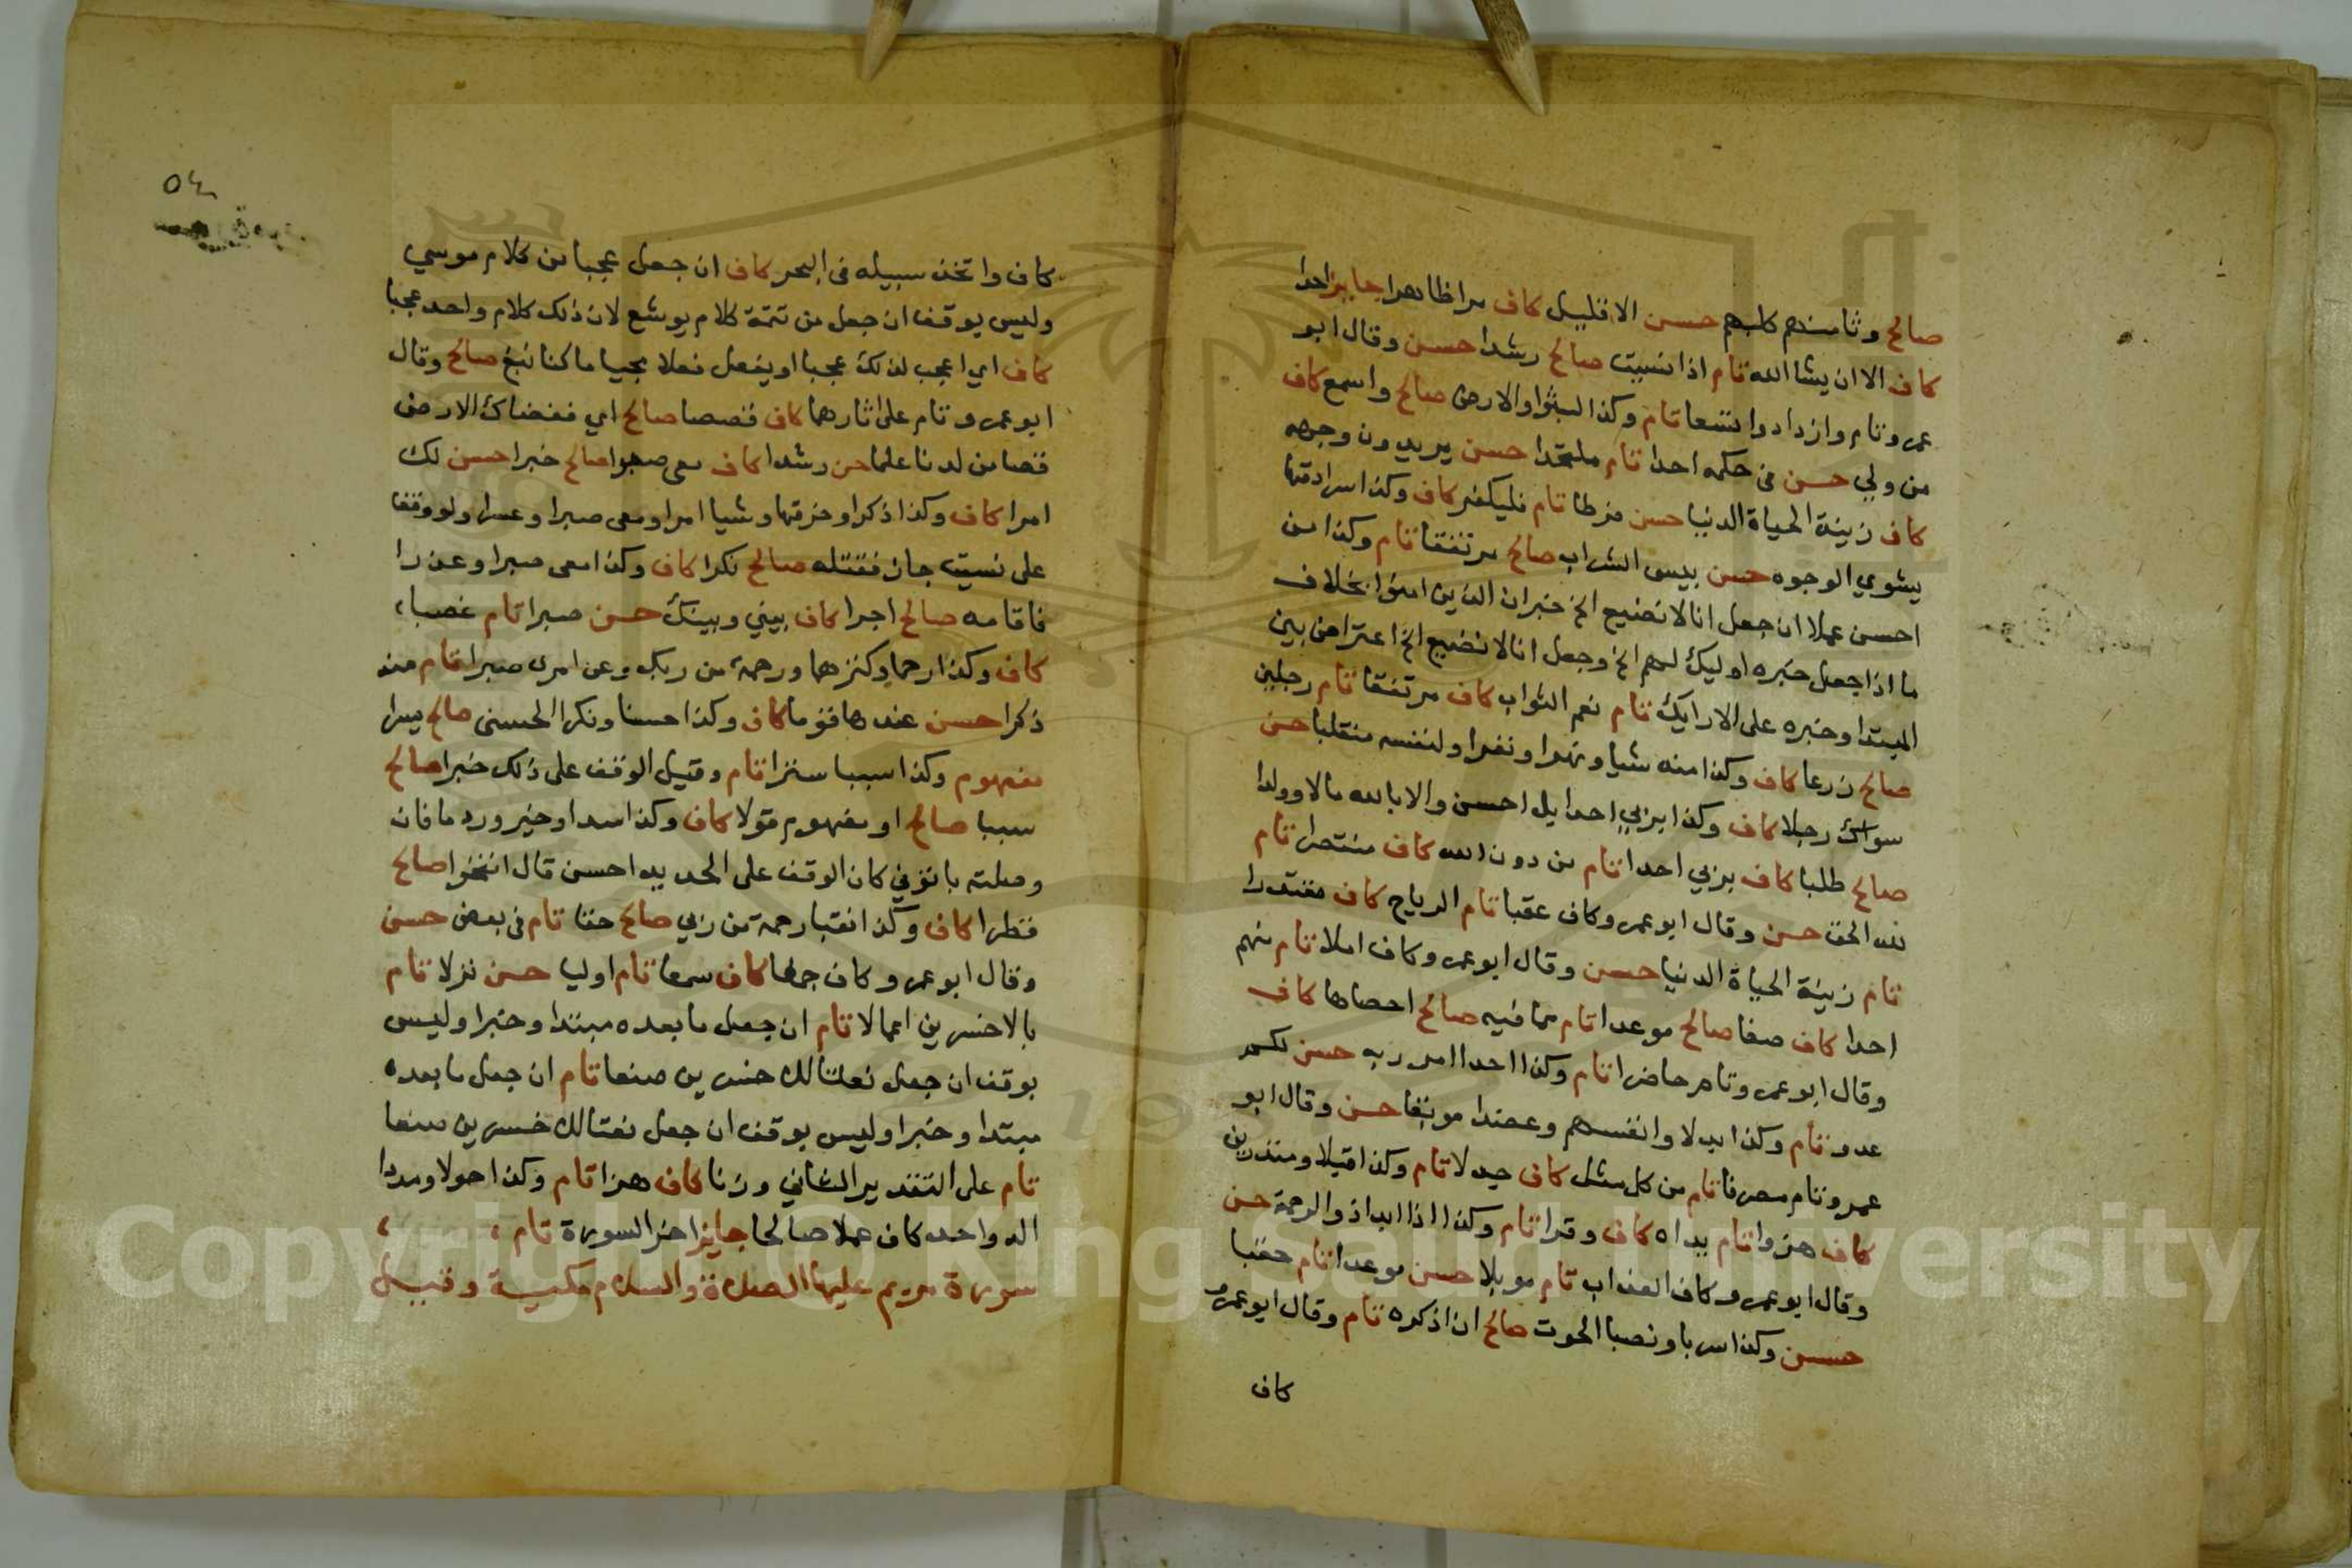 صالح وثامنهم كلبهم حسن الا قليل كاف مرا ظاهرا جايز احدا
كاف الا ان يشا الله تام اذا نسيت صالح رشدا حسن وقال ابو
عمرو تام وازدادوا تسعا تام وكذا لبثوا والارض صالح واسمع كاف
من ولي حسن في حكمه احدا تام ملتحدا حسن يريدون وجهه
كاف زينة الحياة الدنيا حسن فرطا تام فليكفر كاف وكذا سرادقها
يشوي الوجوه حسن بيس الشراب صالح مرتفقا تام وكذا من
احسن عملا ان جعل انا لا نضيع الخ خبر ان الذين امنوا بخلاف
ما اذا جعل خبره اوليك لهم الخ وجعل انا لا نضيع الخ اعتراض بين
المبتدا وخبره على الارايك تام نعم الثواب كاف مرتفقا تام رجلين
صالح زرعا كاف وكذا منه شيا ونهرا ونفرا ولنفسه منقلبا حسن
سواك رجلا كاف وكذا بربي احدا بل احسن والا بالله مالا وولدا
صالح طلبا كاف بربي احدا تام من دون الله كاف منتصرا تام
لله الحق حسن وقال ابو عمرو كاف عقبا تام الرياح كاف مقتدرا
تام زينة الحياة الدنيا حسن وقال ابو عمرو كاف املا تام منهم
احدا كاف صفا صالح موعدا تام مما فيه صالح احصاها كاف
وقال ابو عمرو تام حاضرا تام وكذا احدا امر ربه حسن لكم
عدو تام وكذا بدلا وانفسهم وعضدا موبقا حسن وقال ابو
عمرو تام مصرفا تام من كل مثل كاف جدلا تام وكذا قبلا ومنذرين
كاف هزوا تام يداه كاف وقرا تام وكذا اذا ابدا ذو الرحمة حسن
وقال ابو عمرو كاف العذاب تام موبلا حسن موعدا تام حقبا
حسن وكذا سربا ونصبا الحوت صالح ان اذكره تام وقال ابو عمرو
كاف
٥٤
كاف واتخذ سبيله في البحر كاف ان جعل عجبا من كلام موسي
وليس يوقف ان جعل من تتمة كلام يوشع لان ذلك كلام واحد عجبا
كاف اي اعجب لذلك عجبا او يفعل فعلا عجيبا ما كنا نبغ صالح وقال
ابو عمرو تام على اثارهما كاف قصصا صالح اي فقصاك الارض
قصا من لدنا علما حسن رشدا كاف معى صبرا صالح خبرا حسن لك
امرا كاف وكذا ذكرا وخرقها وشيا امرا ومعى صبرا وعسرا ولو وقفا
على نسيت جاز فقتله صالح نكرا كاف وكذا معى صبرا وعذرا
فاقامه صالح اجرا كاف بيني وبينك حسن صبرا تام غصبا
كاف وكذا رحما وكنزهما ورحمة من ربك وعن امرى صبرا تام منه
ذكرا حسن عندها قوما كاف وكذا حسنا ونكرا الحسنى صالح يسرا
مفهوم وكذا سببا سترا تام وقيل الوقف على ذلك خبرا صالح
سببا صالح او مفهوم قولا كاف وكذا سدا وخير وردما فان
وصلته باتوني كان الوقف على الحديد احسن قال انفخوا صالح
قطرا كاف وكذا نقبا رحمة من ربي صالح حقا تام في بعض حسن
وقال ابو عمرو كاف جمعا كاف سمعا تام اوليا حسن نزلا تام
بالاخسرين اعمالا تام ان جعل ما بعده مبتدا وخبرا وليس
يوقف ان جعل نعتا للاخسرين صنعا تام ان جعل ما بعده
مبتدا وخبرا وليس يوقف ان جعل نعتا للاخسرين صنعا
تام على التقدير الثاني وزنا كاف هزوا تام وكذا حولا ومددا
اله واحد كاف عملا صالحا جايز اخر السورة تام
سورة مريم عليها الصلاة والسلام مكية وقيل
Copyright © King Saud University